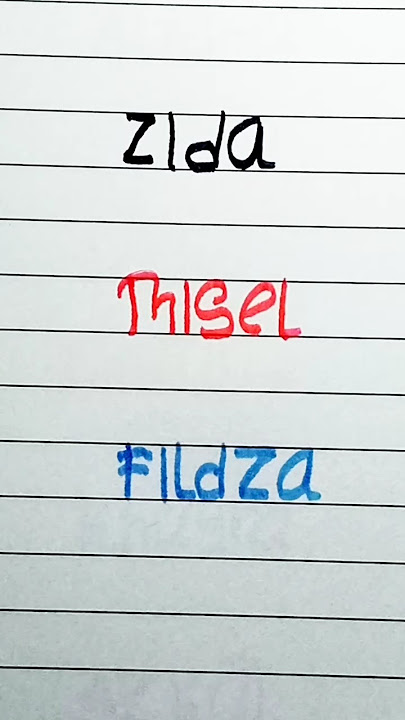 Zida
Thisel
Fildza